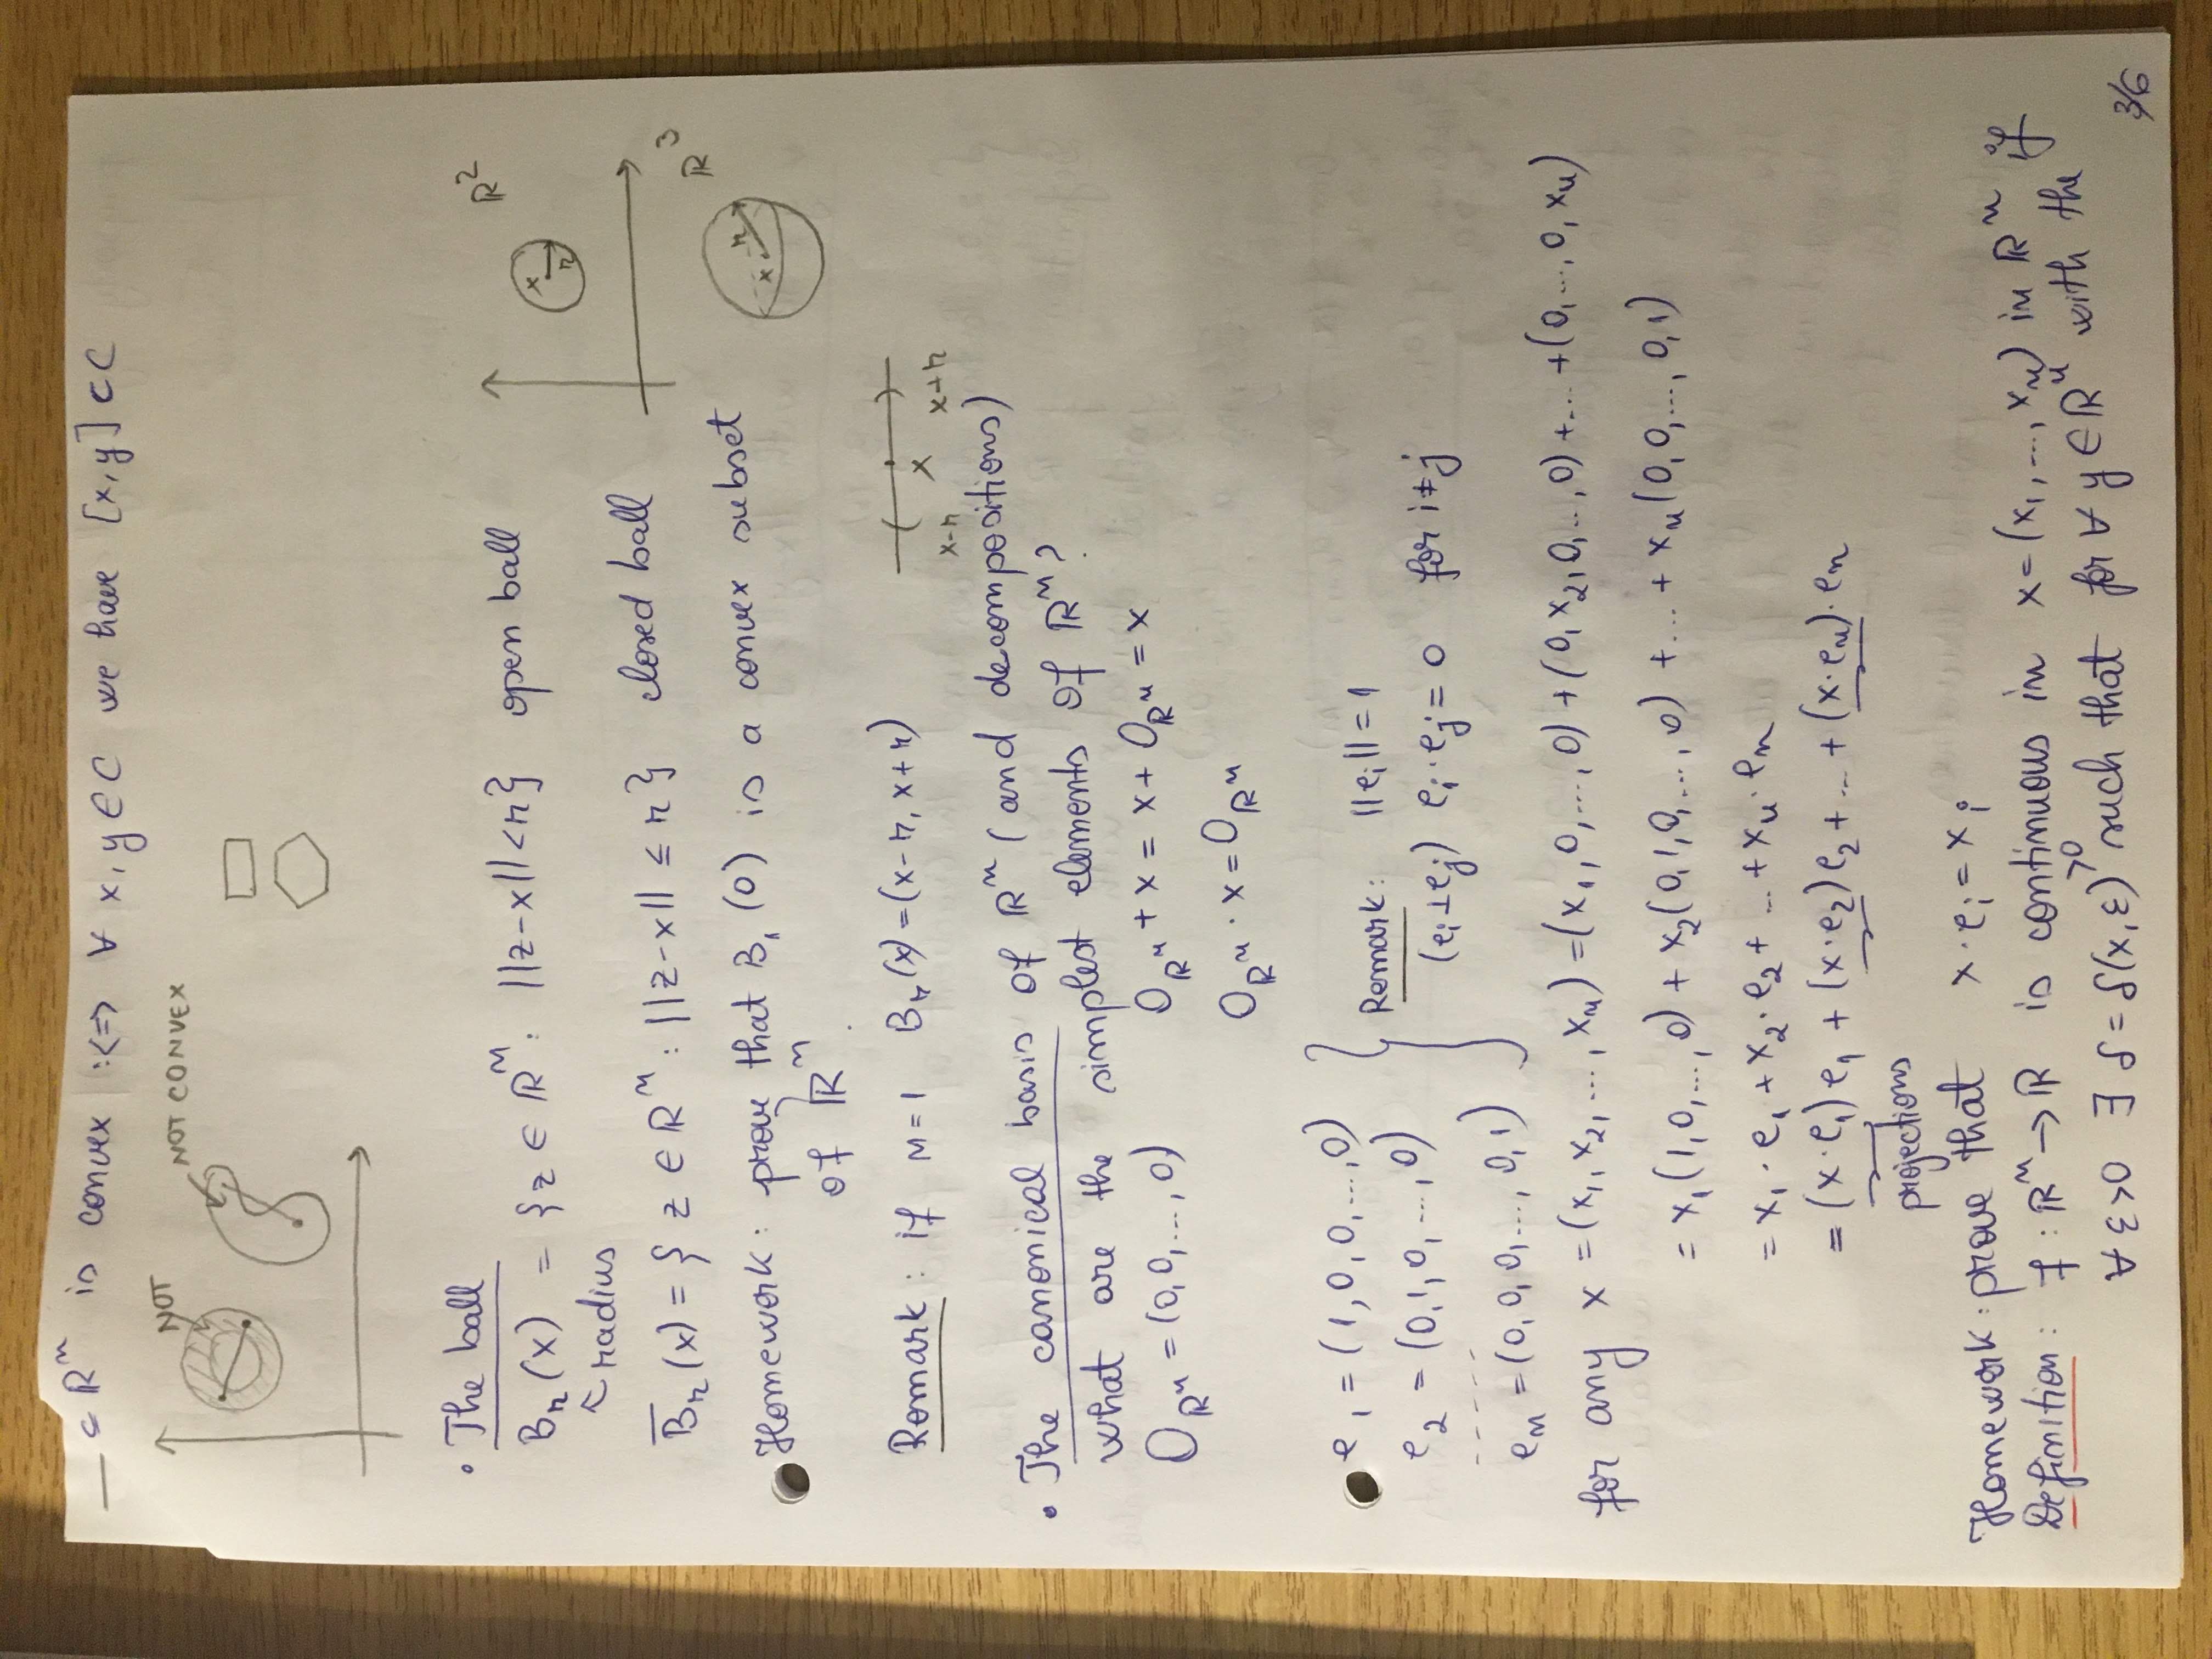 ⊂ ℝⁿ is convex :<=> ∀ x, y ∈ C we have [x, y] ⊂ C
NOT
NOT CONVEX
• The ball
Bᵣ(x) = {z ∈ ℝⁿ : ||z-x|| < r} open ball
radius
ℝ²
x
r
B̅ᵣ(x) = { z ∈ ℝⁿ : ||z-x|| ≤ r} closed ball
ℝ³
x
r
Homework: prove that B₁(0) is a convex subset
of ℝⁿ.
Remark: if n=1 Bᵣ(x)=(x-r, x+r)
x-r x x+r
• The canonical basis of ℝⁿ (and decompositions)
what are the simplest elements of ℝⁿ?
0_ℝⁿ = (0,0,...,0) 0_ℝⁿ + x = x + 0_ℝⁿ = x
0_ℝⁿ · x = 0_ℝⁿ
e₁ = (1,0,0,...,0)
e₂ = (0,1,0,...,0)
-----
eₙ = (0,0,0,...,0,1)
Remark: ||eᵢ|| = 1
(eᵢ⊥eⱼ) eᵢ·eⱼ = 0 for i≠j
for any x = (x₁, x₂, ..., xₙ) = (x₁,0,...,0) + (0,x₂,0,...,0) + ... + (0,...,0,xₙ)
= x₁(1,0,...,0) + x₂(0,1,0,...,0) + ... + xₙ(0,0,...,0,1)
= x₁·e₁ + x₂·e₂ + ... + xₙ·eₙ
= (x·e₁)e₁ + (x·e₂)e₂ + ... + (x·eₙ)·eₙ
projections
Homework: prove that x·eᵢ = xᵢ
Definition: f : ℝⁿ → ℝ is continuous in x=(x₁,...,xₙ) in ℝⁿ if
∀ ε<0 ∃ δ=δ(x,ε)>0 such that for ∀ y ∈ ℝⁿ with the
3/6